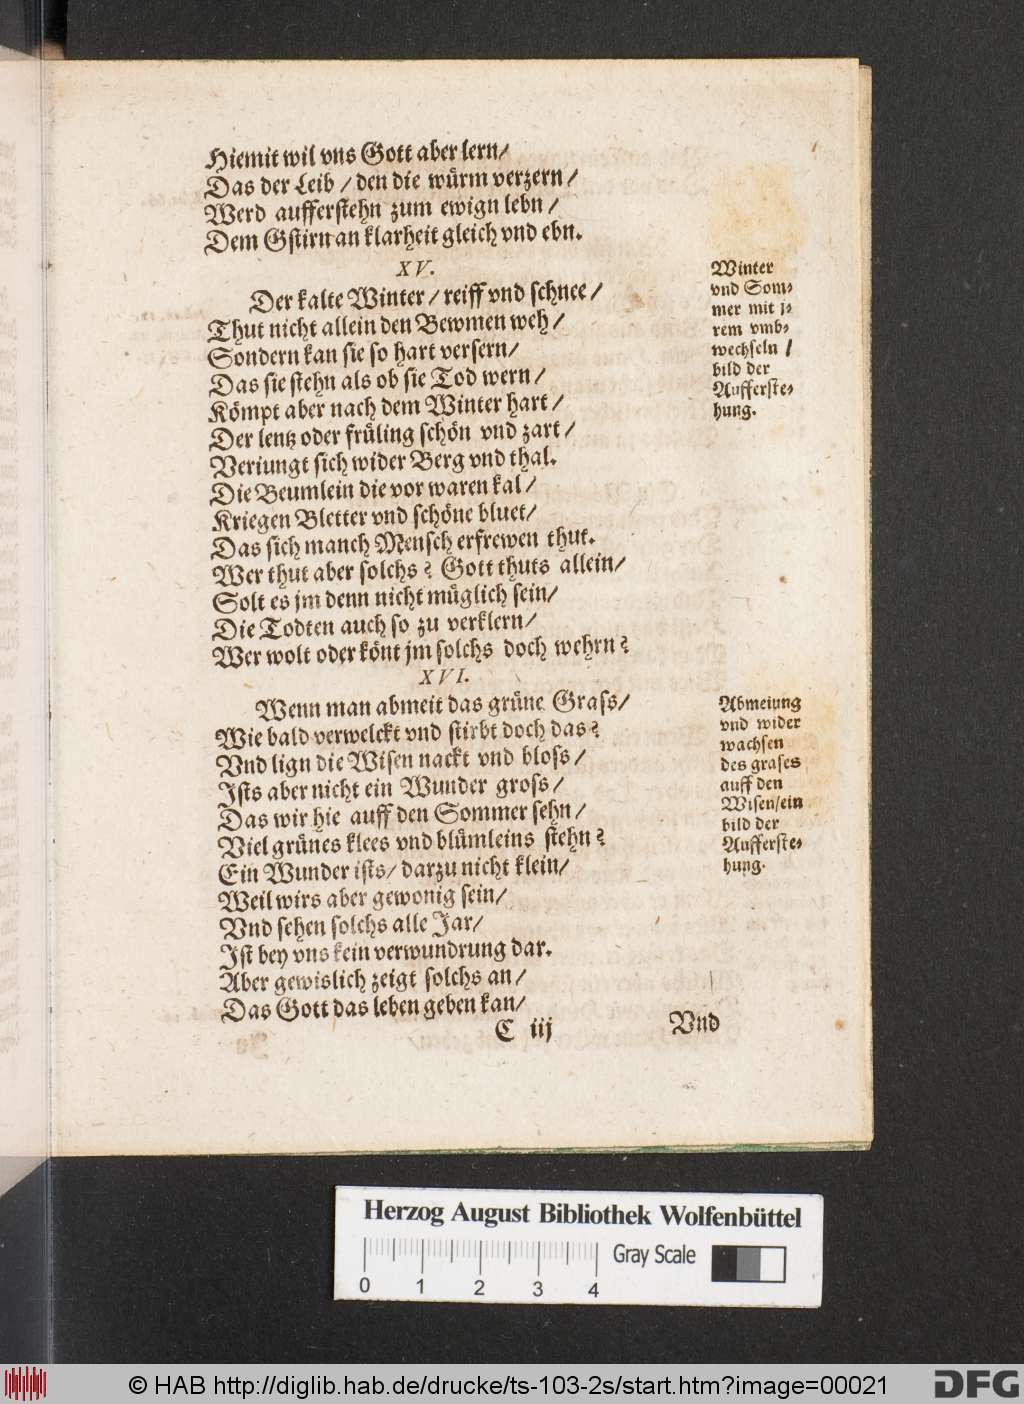 Hiemit wil vns Gott aber lern/
Das der Leib / den die würm verzern /
Werd aufferstehn zum ewign lebn /
Dem Gstirn an klarheit gleich vnd ebn.
XV.
Der kalte Winter / reiff vnd schnee /
Thut nicht allein den Bewmen weh /
Sondern kan sie so hart versern/
Das sie stehn als ob sie Tod wern /
Kömpt aber nach dem Winter hart /
Der lentz oder früling schön vnd zart /
Veriungt sich wider Berg vnd thal.
Die Beumlein die vor waren kal /
Kriegen Bletter vnd schöne bluet/
Das sich manch Mensch erfrewen thut.
Wer thut aber solchs? Gott thuts allein/
Solt es jm denn nicht müglich sein/
Die Todten auch so zu verklern/
Wer wolt oder könt jm solchs doch wehrn?
Winter
vnd Som-
mer mit j-
rem vmb-
wechseln /
bild der
Aufferste-
hung.
XVI.
Wenn man abmeit das grüne Grass/
Wie bald verwelckt vnd stirbt doch das?
Vnd lign die Wisen nackt vnd bloss /
Ists aber nicht ein Wunder gross /
Das wir hie auff den Sommer sehn /
Viel grünes klees vnd blümleins stehn?
Ein Wunder ists/ darzu nicht klein/
Weil wirs aber gewonig sein/
Vnd sehen solchs alle Jar/
Ist bey vns kein verwundrung dar.
Aber gewislich zeigt solchs an /
Das Gott das leben geben kan/
Abmeiung
vnd wider
wachsen
des grases
auff den
Wisen/ein
bild der
Aufferste-
hung.
C iij Vnd
Herzog August Bibliothek Wolfenbüttel
Gray Scale
0 1 2 3 4
© HAB http://diglib.hab.de/drucke/ts-103-2s/start.htm?image=00021
DFG